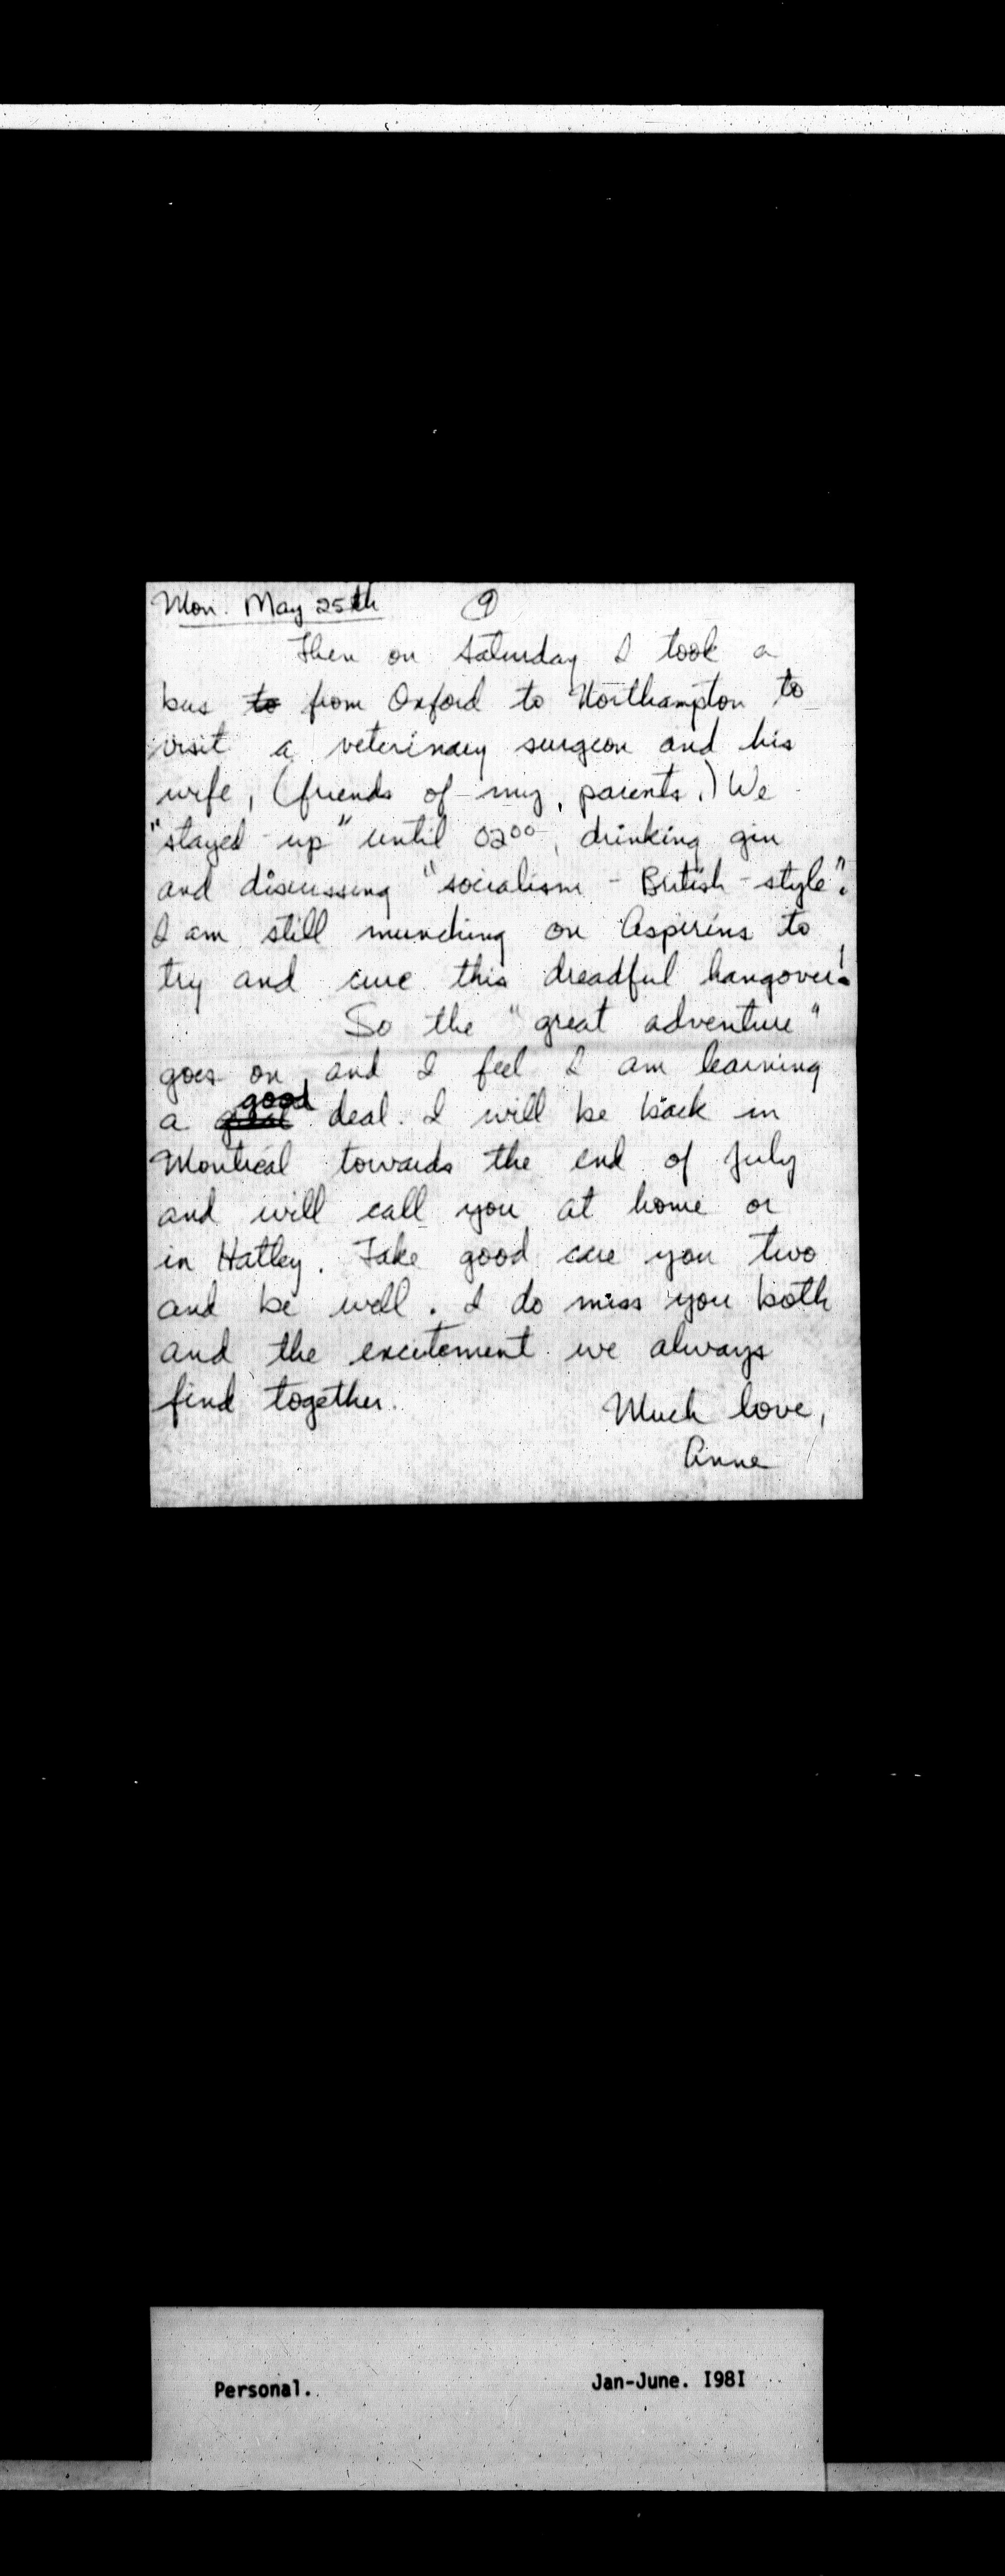 Mon. May 25th ⑨
Then on Saturday I took a
bus ~~to~~ from Oxford to Northampton to
visit a veterinary surgeon and his
wife, (friends of my parents.) We
"stayed up" until 02⁰⁰, drinking gin
and discussing "socialism - British-style".
I am still munching on Aspirins to
try and cure this dreadful hangover!
So the "great adventure"
goes on, and I feel I am learning
a ~~great~~ good deal. I will be back in
Montreal towards the end of July
and will call you at home or
in Hatley. Take good care you two
and be well. I do miss you both
and the excitement we always
find together.
Much love,
Anne
Personal. Jan-June. I98I